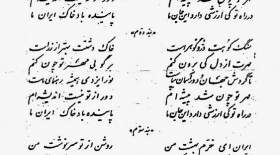 در راه تو کی ارزشی دارد این جان ما
پاینده باد خاک ایران ما
«بند دوم»
سنگ کوهت در و گوهر است
خاک دشتت بهتر از زر است
مهرت از دل کی برون کنم
بر گو بی مهر تو چون کنم
تا گردش جهان و دور آسمان بپاست
نور ایزدی همیشه رهنمای ماست
مهر تو چون شد پیشه‌ام
دور از تو نیست اندیشه‌ام
در راه تو کی ارزشی دارد این جان ما
پاینده باد خاک ایران ما
«بند سوم»
ایران ای خرم بهشت من
روشن از تو سرنوشت من